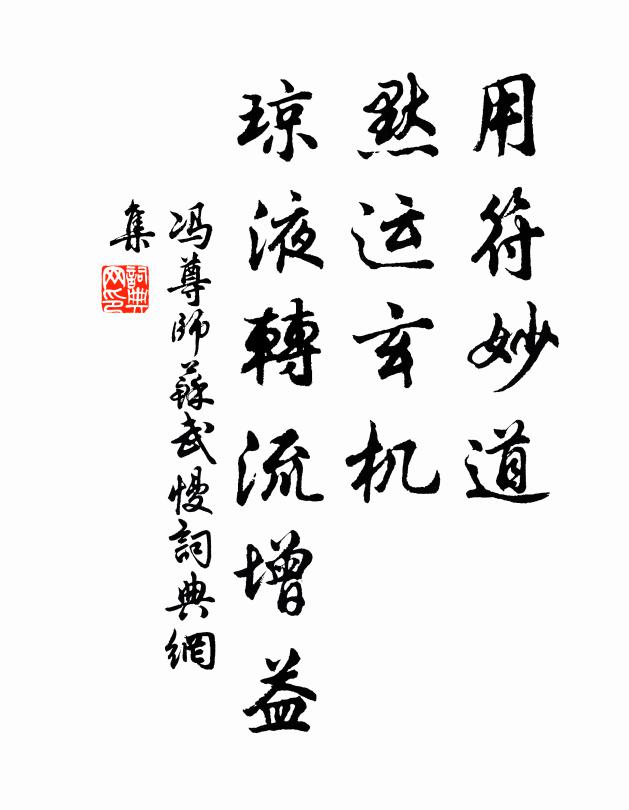 用符妙道
默运玄机
琼液轉流增益
冯尊师蘇武慢詞典網
集
詞典网印